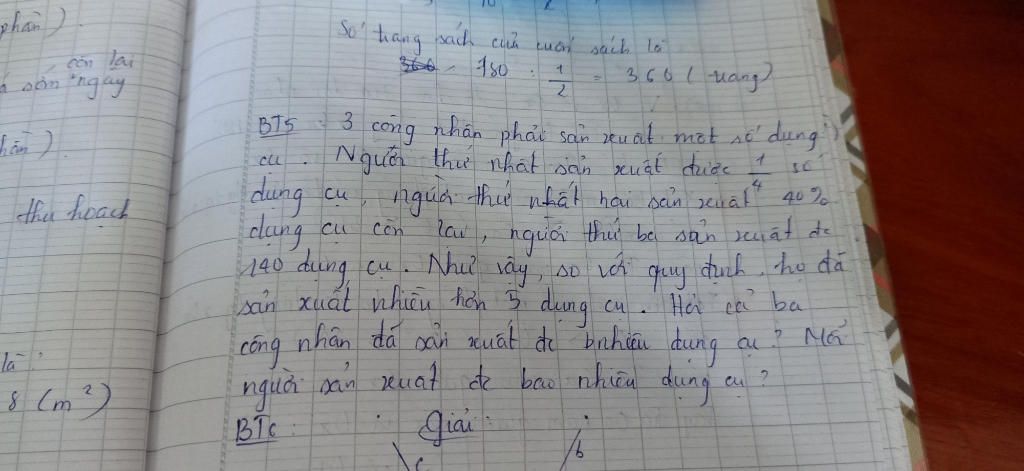 phần).
còn lại
sớm ngày
hần).
thu hoạch
là:
8 (m²)
Số trang sách của cuốn sách là
360 180 : 1/2 = 360 (trang)
BT5 : 3 công nhân phải sản xuất một số dụng
cụ. Người thứ nhất sản xuất được 1/4 số
dụng cụ, người thứ nhất hai sản xuất 40%
dụng cụ còn lại, người thứ ba sản xuất đc
140 dụng cụ. Như vậy, so với quy định, họ đã
sản xuất nhiều hơn 5 dụng cụ. Hỏi cả ba
công nhân đã sản xuất đc bnhiêu dụng cụ? Mỗi
người sản xuất đc bao nhiêu dụng cụ?
BT6 : Giải :
b
c